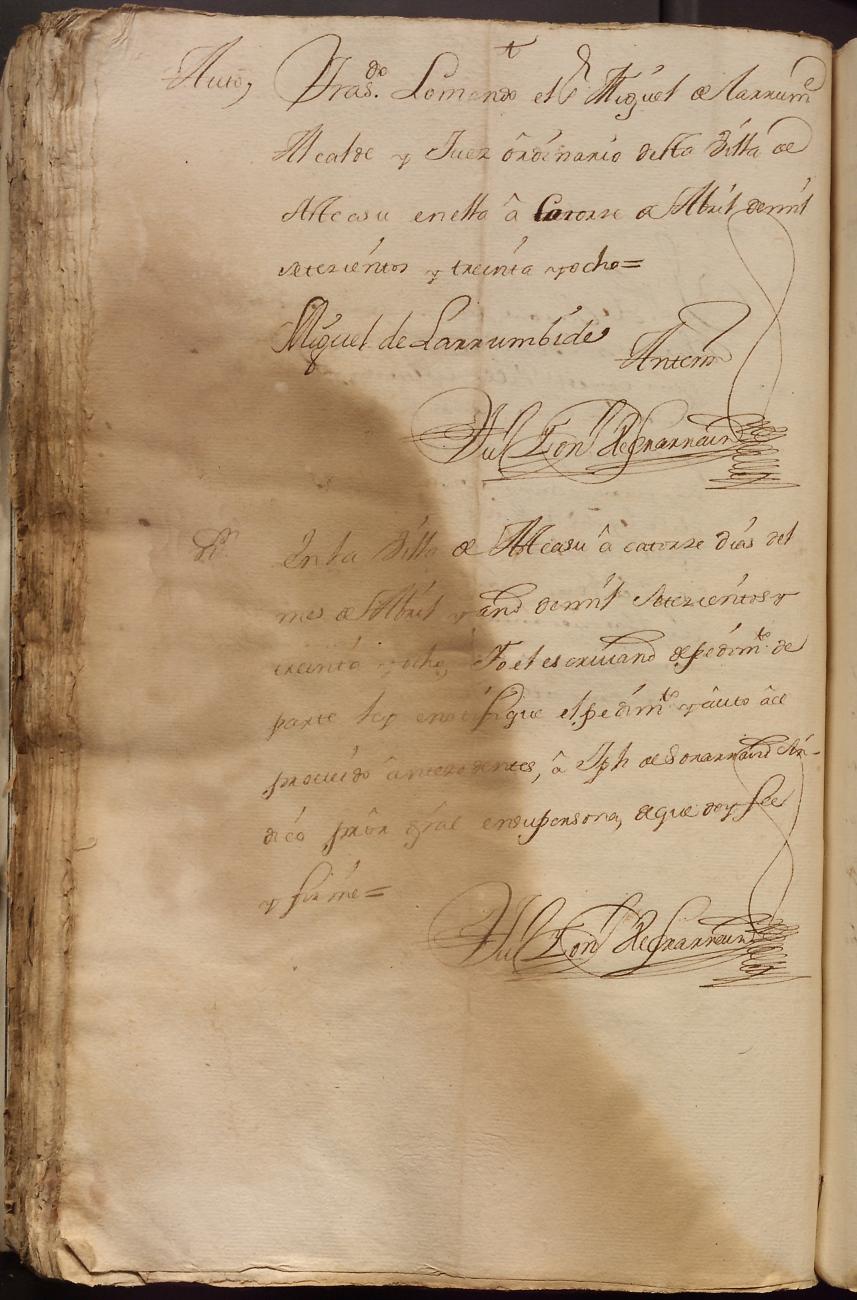 Auto,
Trasdo. Lo mando el Sr Miguel de Larrumde
Alcalde y Juez ôrdinario desta Villa de
Alleasu en ella â Catorze de Abril de mil
setezientos y treinta y ocho=
Miguel de Larrumbide
Ante mi
En la Villa de Alleasu â catorze dias del
mes de Abril y año de mil setezientos y
treinta y ocho, Yo el escrivano de pedimto. de
parte ley e notifique el pedimto y âuto de
proveido ântezedentes, â Jph de Sorarrain Sin-
dico prôr gral en su persona, de que doy fee
y firme=